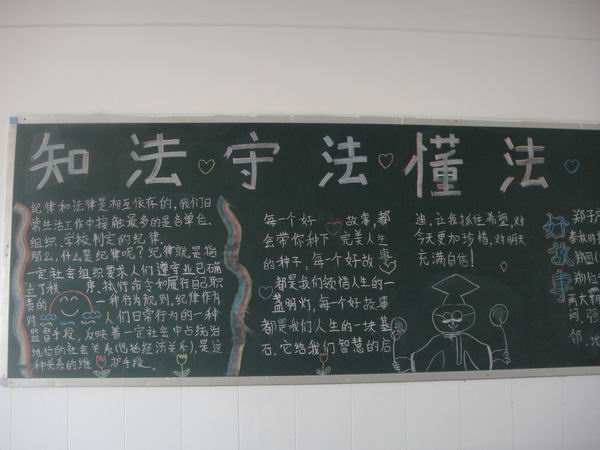 知法守法懂法
纪律和法律是相互依存的,我们日
常生活工作中接触最多的是各单位、
组织、学校制定的纪律。
那么,什么是纪律呢?纪律就是指
一定社会组织要求人们遵守业已确
占了秩序,执行命令和履行自己职
责的一种行为规则,纪律作为
对人们日常行为的一种
监督手段,反映着一定社会中占统治
地位的社会关系(包括经济关系),是这
种关系的维护手段。
每一个好故事,都
会带你种下完美人生
的种子,每个好故事
都是我们领悟人生的一
盏明灯,每个好故事
都是我们人生的一块基
石。它给我们智慧的启
迪,让我抓住希望,对
今天更加珍惜,对明天
充满自信!
好故事